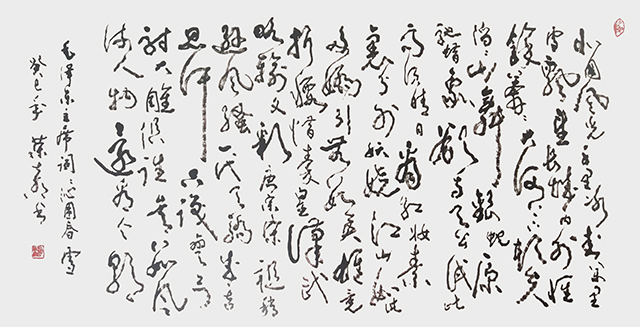 北国风光千里冰封万里
雪飘望长城内外惟
馀莽莽大河上下顿失
滔滔山舞银蛇原
驰蜡象欲与天公试比
高须晴日看红妆素
裹分外妖娆江山如此
多娇引无数英雄竞
折腰惜秦皇汉武
略输文彩唐宗宋祖稍
逊风骚一代天骄成吉
思汗只识弯弓
射大雕俱往矣数风
流人物还看今朝
毛泽东主席词沁园春雪
癸巳年
书